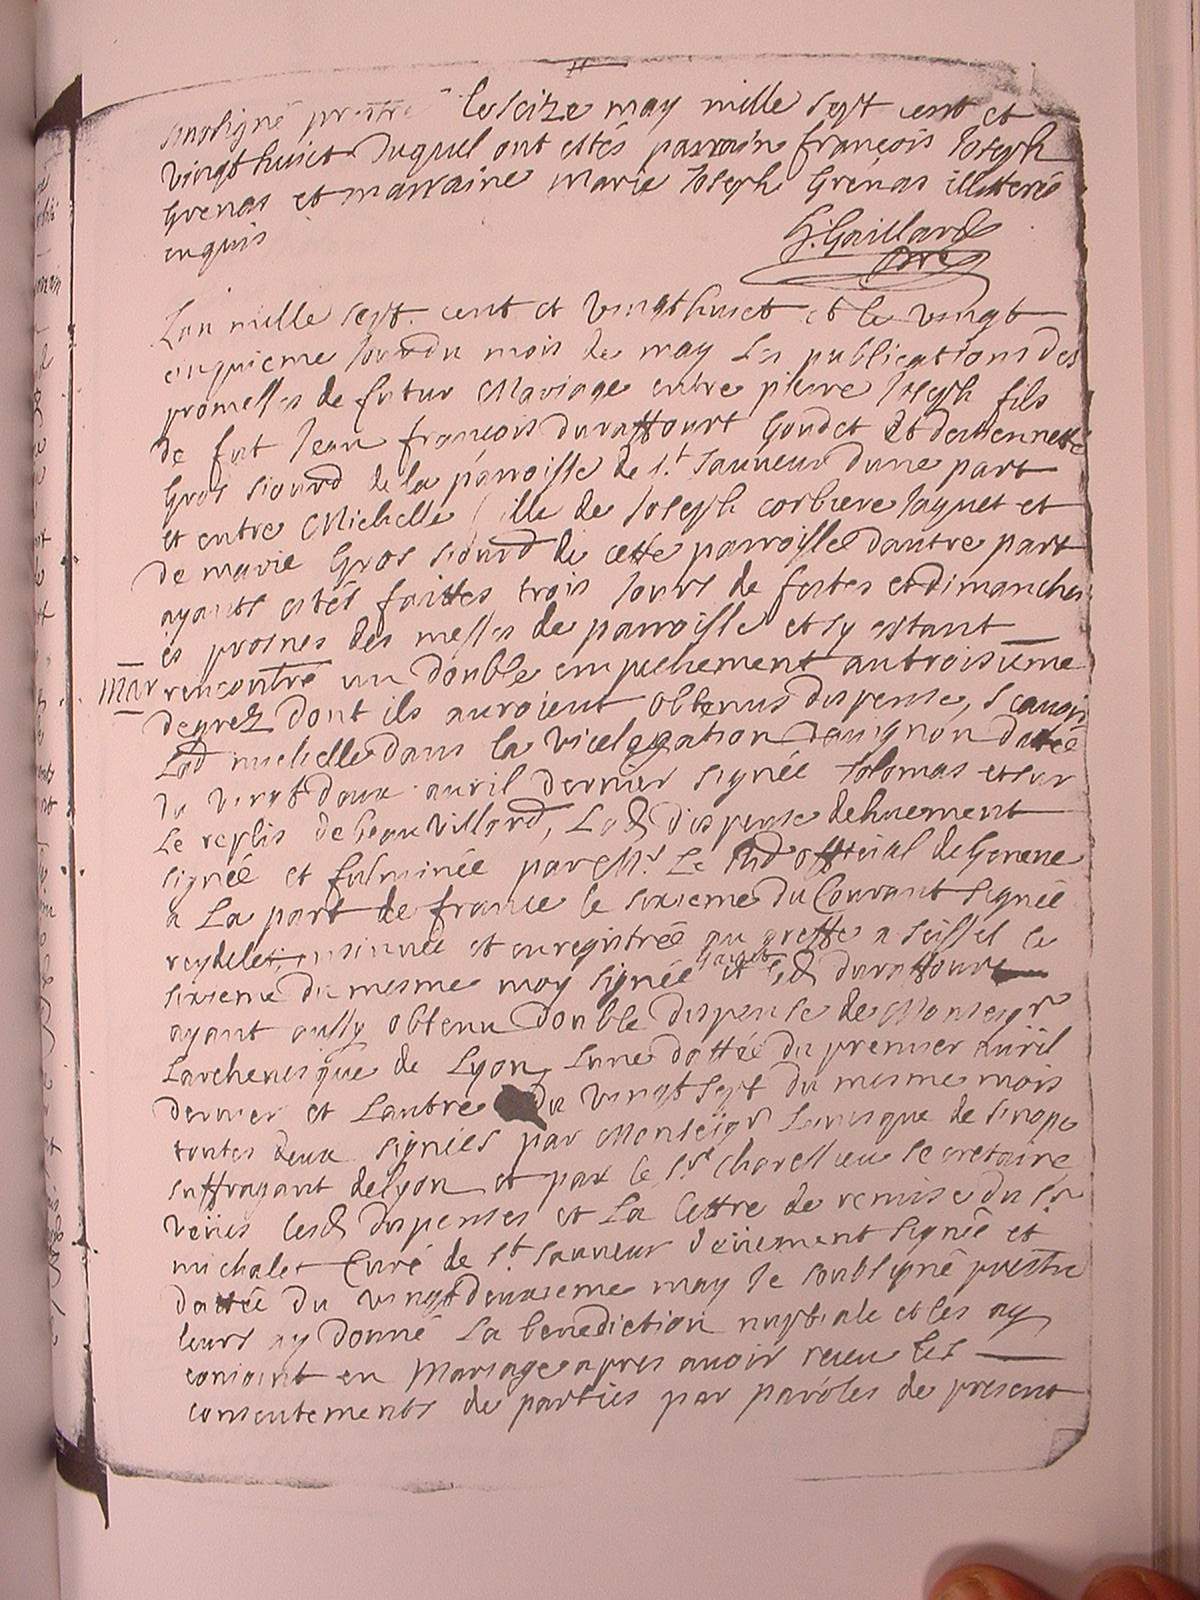 soubsigné prestre le seize may mille sept cent et
vingt huict duquel ont estés parrain françois Joseph
Grenas et marraine marie Joseph Grenas illitterés
enquis
G. Gaillard
Lan mille sept. cent et vingt huict et le vingt
cinquieme Jour du mois de may Les publications des
promesses de futur Mariage entre pierre Joseph fils
de fut Jean françois duraffourt Goudet Et detiennette
Gros siourd de la parroisse de S.t Sauveur dune part
et entre Michelle fille de Joseph corbiere Jaquet et
de marie Gros siourd de cette parroisse dautre part
ayants estés faittes trois Jours de festes et dimanches
és prosnes des messes de parroisse et sy estant
mar rencontré un double empechement au troisieme
degrez dont ils auroient obtenus dispense, Scavoir
Lad michelle dans la vicelegation davignon dattée
du vingt deux avril dernier signée tolomas et sur
Le replis de beauvillard, Lad dispense dehuement
signée et fulminée par M.r Le official de Geneve
a La part de france le sixieme du Courant signée
reydelet, insinuée et enregistrée au greffe a seissel le
sixieme du mesme moy signée et led duraffourt
ayant aussy obtenu double dispense de Monseigr
Larchevesque de Lyon Lune dattée du premier avril
dernier et Lautre du vingt sept du mesme mois
toutes deux signées par Monseigr Levesque de sinope
suffragant de lyon et par le Sr secretaire
veües lesd dispenses et La lettre de remise du Sr
michalet Curé de S.t Sauveur deüement signée et
dattée du vingt deuxieme may Je soubsigné prestre
leurs ay donné La benediction nuptiale et les ay
conioint en Mariage apres avoir receu les
consentements de parties par paroles de present